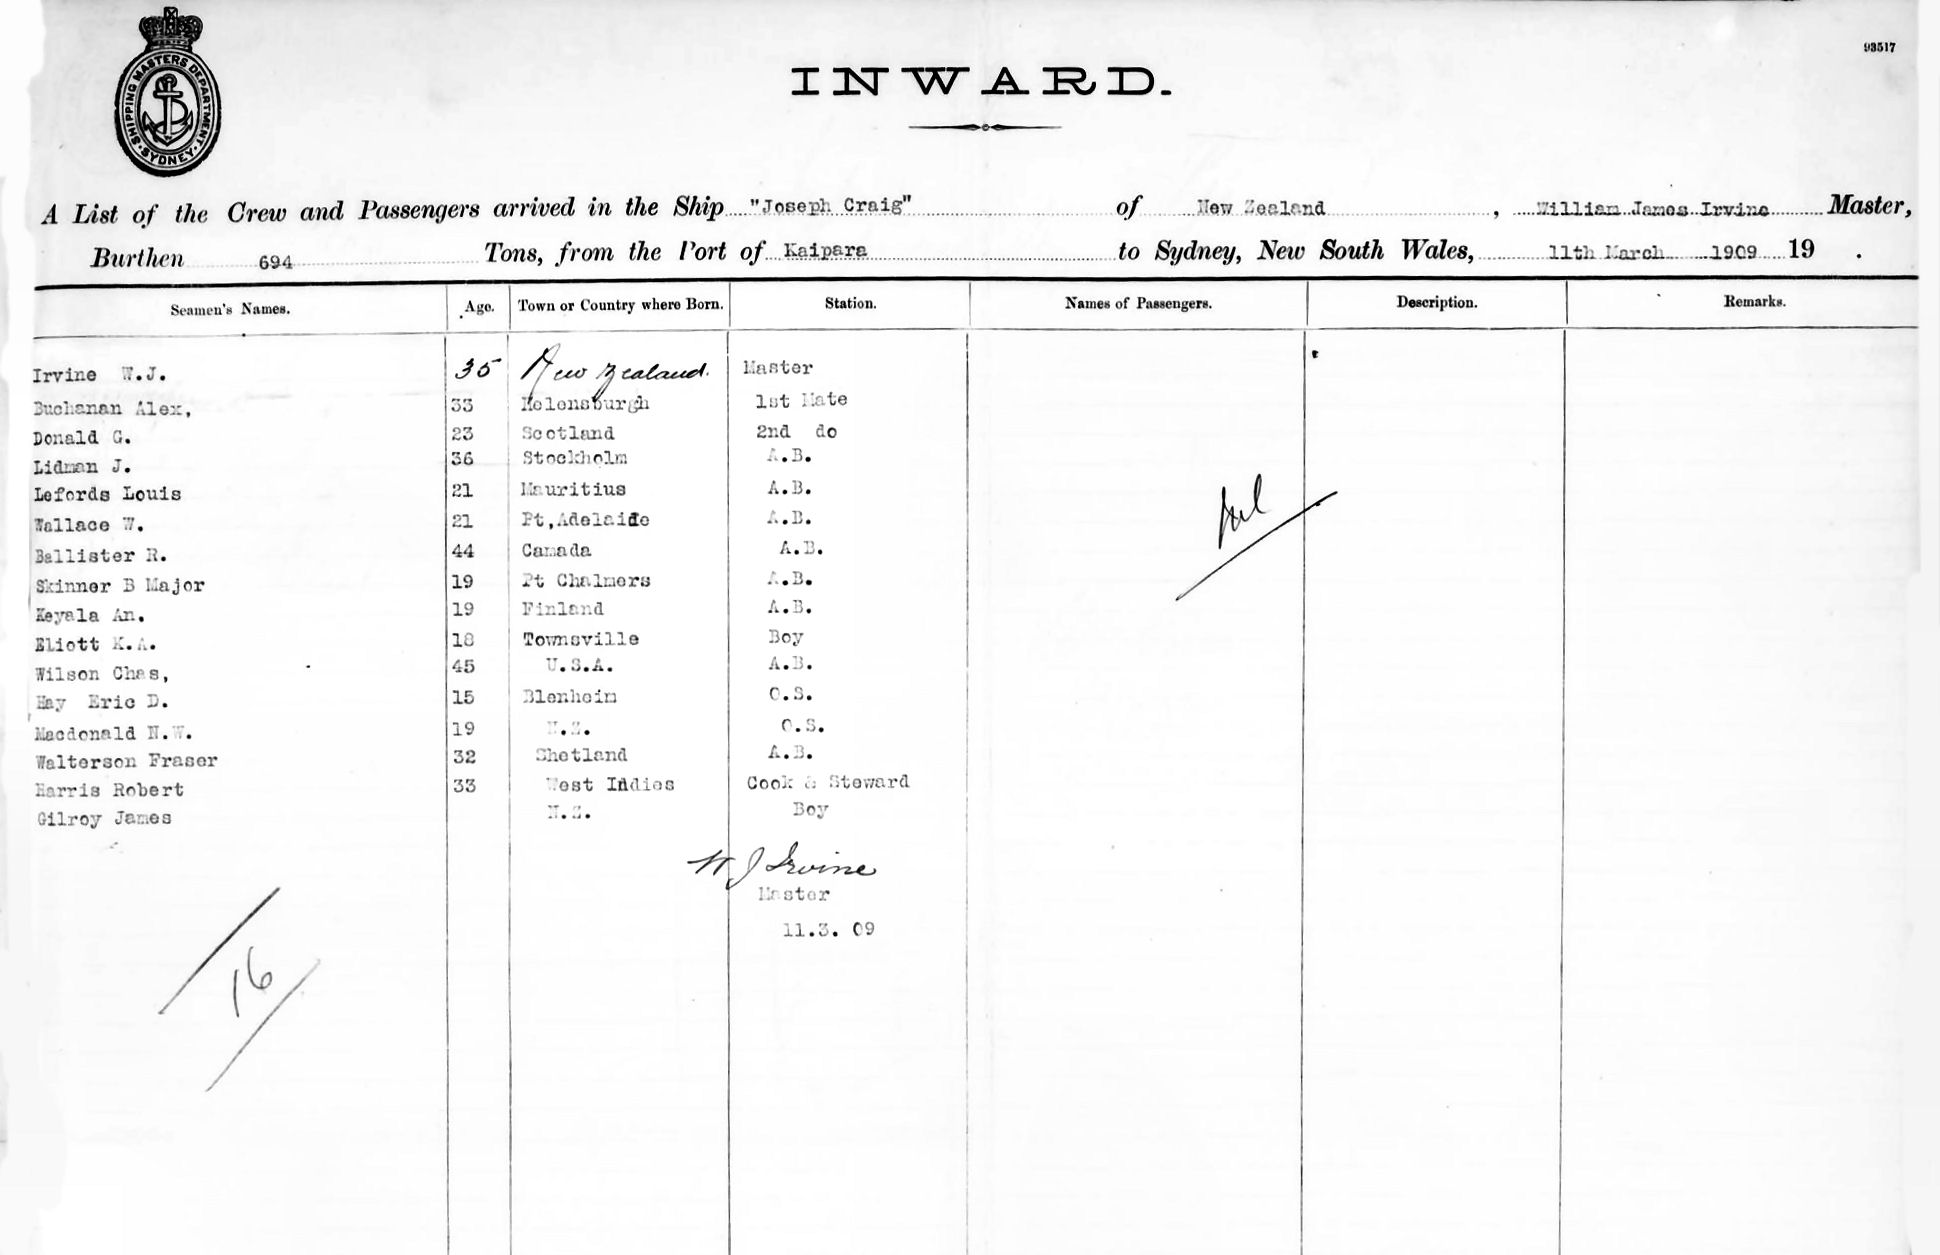 SHIPPING MASTERS DEPARTMENT · SYDNEY ·
93517
INWARD.
A List of the Crew and Passengers arrived in the Ship "Joseph Craig" of New Zealand, William James Irvine Master,
Burthen 694 Tons, from the Port of Kaipara to Sydney, New South Wales, 11th March 1909 19 .
Seamen's Names. Age. Town or Country where Born. Station. Names of Passengers. Description. Remarks.
Irvine W.J. 35 New Zealand. Master
Buchanan Alex, 33 Helensburgh 1st Mate
Donald G. 23 Scotland 2nd do
Lidman J. 36 Stockholm A.B.
Lefords Louis 21 Mauritius A.B.
Wallace W. 21 Pt,Adelaide A.B.
Ballister R. 44 Canada A.B.
Skinner B Major 19 Pt Chalmers A.B.
Keyala An. 19 Finland A.B.
Eliott K.A. 18 Townsville Boy
Wilson Chas, 45 U.S.A. A.B.
Hay Eric D. 15 Blenheim O.S.
Macdonald N.W. 19 N.Z. O.S.
Walterson Fraser 32 Shetland A.B.
Harris Robert 33 West Indies Cook & Steward
Gilroy James N.Z. Boy
Nil
W J Irvine
Master
11.3. 09
16